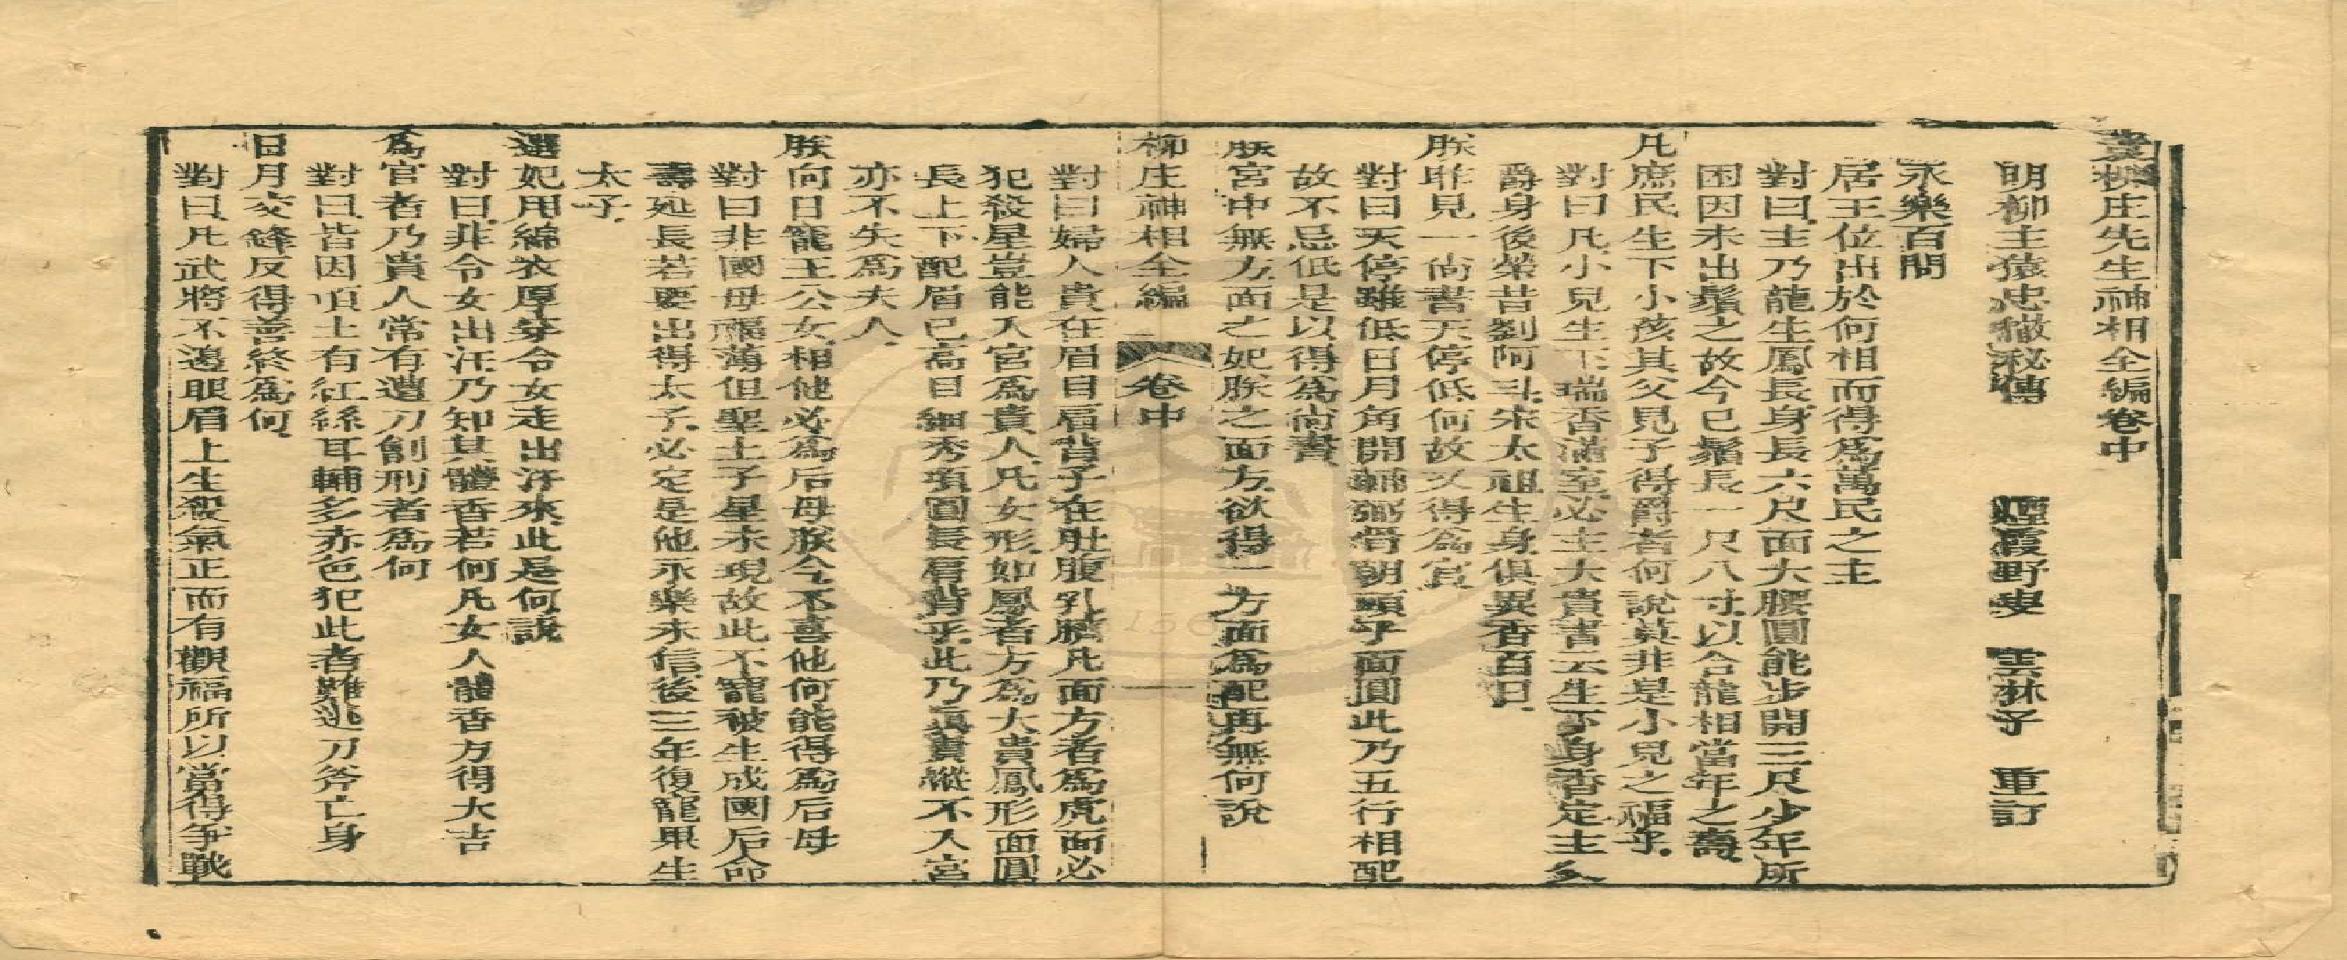 袁柳庄先生神相全編卷中
明柳主猿忠徹秘傳 煙霞野叟 雲林子 重訂
永樂百問
居王位出於何相而得爲萬民之主
對曰主乃龍生鳳長身長六尺面大腰圓能步開三尺少年所
困因未出鬚之故今已鬚長一尺八寸以合龍相當年之壽
凡庶民生下小孩其父見子得爵者何說莫非是小兒之福乎
對曰凡小兒生下瑞香滿室必主大貴書云生下身香定主
爵身後榮昔劉阿斗宋太祖生身俱異香百日
朕昨見一尚書天停低何故又得爲官
對曰天停雖低日月角開輔弼骨朝頭乎面圓此乃五行相配
故不忌低是以得爲尚書
朕宮中無方面之妃朕之面方欲得一方面爲配再無何說
柳庄神相全編 卷中
對曰婦人貴在眉目肩背子在肚腹乳臍凡面方者爲虎面必
犯殺星豈能入宮爲貴人凡女形如鳳者方爲大貴鳳形面圓
長上下配眉已高目細秀項圓長肩背平此乃真貴縱不入宮
亦不失爲夫人
朕向日寵王公女相他必爲后母朕今不喜他何能得爲后母
對曰非國母福薄但聖上子星未現故此不寵被生成國后命
壽延長若要出得太子必定是他永樂未信後三年復寵果生
太子
選妃用綿衣厚穿令女走出汗來此是何說
對曰非令女出汗乃知其體香若何凡女人體香方得大吉
爲官者乃貴人常有遭刀劍刑者爲何
對曰皆因項上有紅絲耳輔多赤色犯此者難逃刀斧亡身
日月交鋒反得善終爲何
對曰凡武將不邊眼眉上生殺氣正而有觀福所以當得爭戰